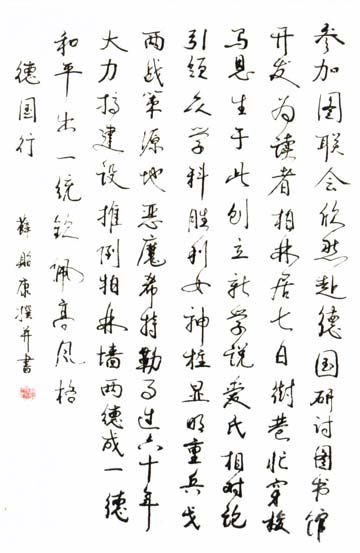 参加图联会欣然赴德国研讨图书馆
开发为读者柏林居七日街巷忙穿梭
马恩生于此创立新学说爱氏相对论
引领众学科胜利女神柱显明重兵戈
两战策源地恶魔希特勒事过六十年
大力搞建设推倒柏林墙两德成一德
和平出一统钦佩高风格
德国行
康撰并书